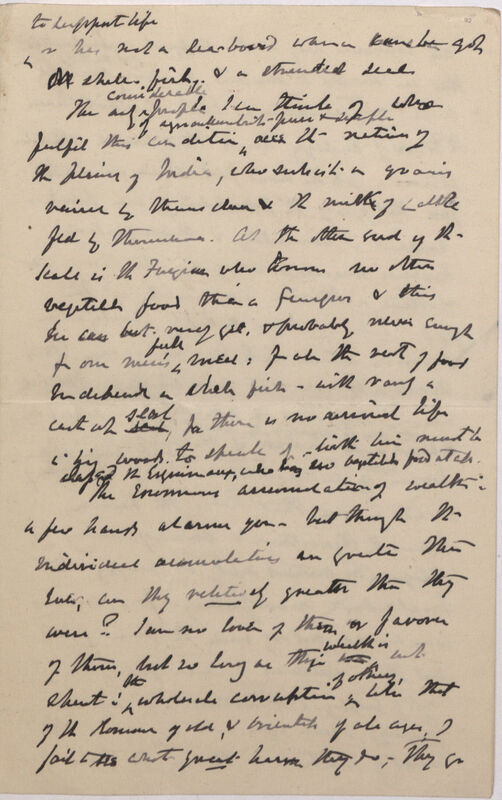 to support life
& has not a seaboard whence can be got
shell fish, & a stranded seal
considerable
The only people I can think of who
of agriculturists pure & simple
fulfil this condition are the natives of
the plains of India, who subsist on grains
raised by themselves & the milk of cattle
fed by themselves. At the other end of the
scale is the Fuegian who knows no other
vegetable food than a fungus & this
he can but rarely get, & probably never enough
for one man's full meal: for all the rest of food
he depends on shell fish - with rarely a
cast up seal, for there is no animal life
in his woods to speak of - with him must be
classed the Esquimaux, who has no vegetable food at all.
The enormous accumulation of wealth in
a few hands alarms you - but though the
individual accumulations are greater than
ever, are they relatively greater than they
were? I am no lover of them or favorer
of them, but so long as their wealth is not
spent in the wholesale corruption of others, like that
of the Romans of old, & orientals of all ages, I
fail to see what great harm they do, - They go